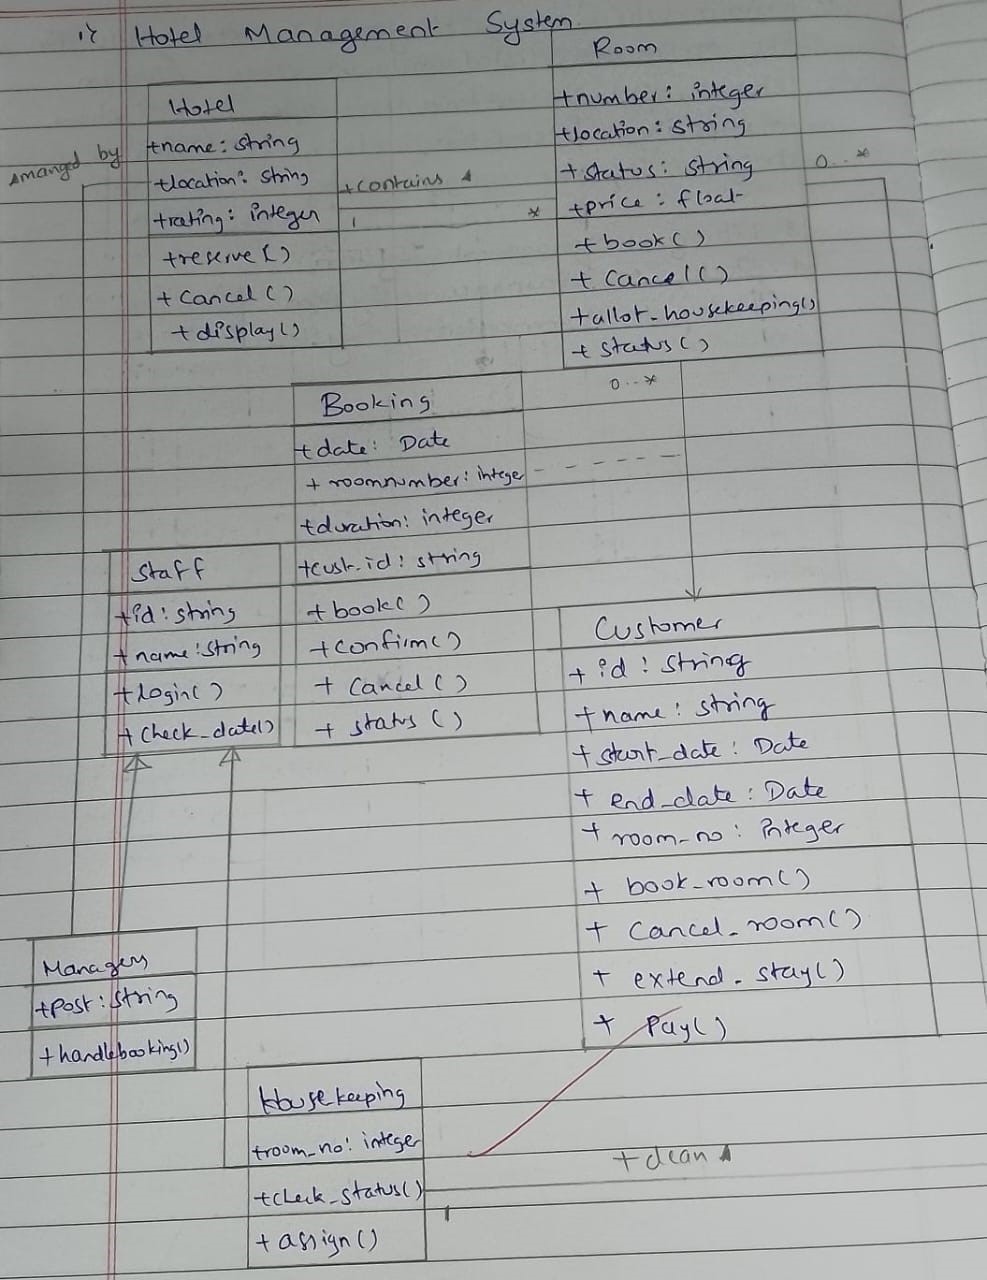 1) Hotel Management System
Hotel
+name: string
+location: string
+rating: integer
+reserve()
+cancel()
+display()
managed by
+contains
1
*
Room
+number: integer
+location: string
+status: string
+price: float
+book()
+cancel()
+allot_housekeeping()
+status()
0..*
0..*
Booking
+date: Date
+roomnumber: integer
+duration: integer
+cust_id: string
+book()
+confirm()
+cancel()
+status()
Staff
+id: string
+name: string
+login()
+check_date()
Customer
+id: string
+name: string
+start_date: Date
+end_date: Date
+room_no: integer
+book_room()
+cancel_room()
+extend_stay()
+Pay()
Manager
+post: string
+handlebooking()
Housekeeping
+room_no: integer
+check_status()
+assign()
+clean
1